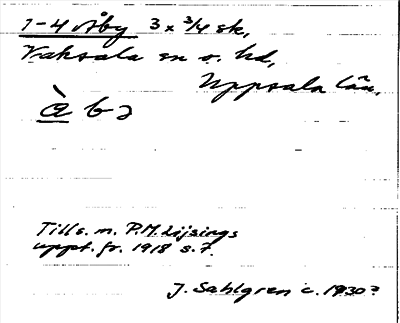 1-4 Åby 3 x 3/4 sk,
Vaksala sn o. hd,
Uppsala län.
à b
Tills. m. P.M. Lijsings
uppt. fr. 1918 s. 7.
J. Sahlgren c. 1930?